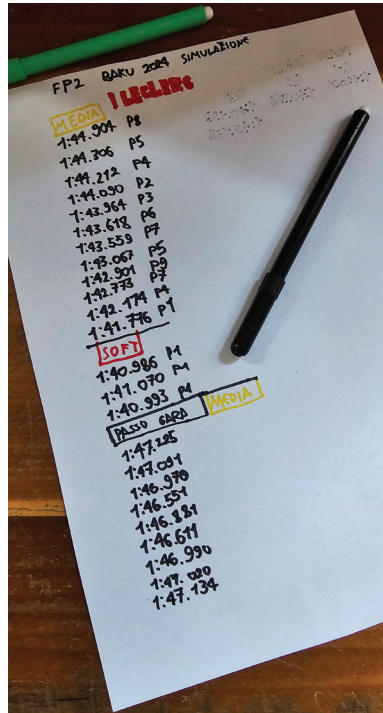 FP2 BAKU 2024 SIMULAZIONE
1 LECLERC
MEDIA
1:44.904 P8
1:44.306 P5
1:44.212 P4
1:44.090 P2
1:43.964 P3
1:43.618 P6
1:43.559 P7
1:43.067 P5
1:42.901 P9
1:42.773 P7
1:42.174 P4
1:41.776 P1
SOFT
1:40.986 P1
1:41.070 P1
1:40.993 P1
PASSO GARA MEDIA
1:47.225
1:47.091
1:46.970
1:46.551
1:46.881
1:46.611
1:46.990
1:47.020
1:47.134